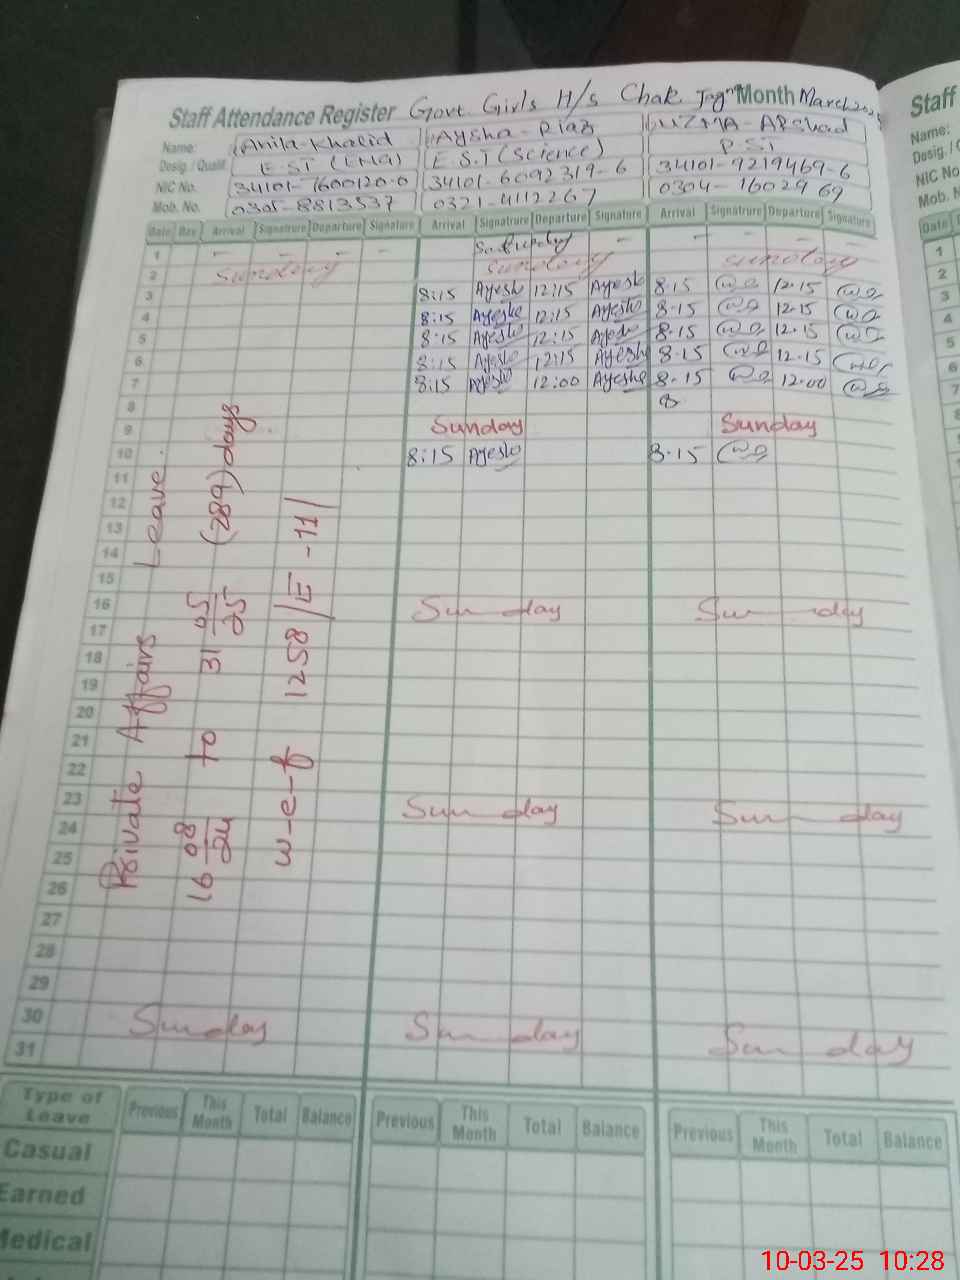 Staff Attendance Register Govt. Girls H/s Chak Month March
Staff
Name: Anila-Khalid Aysha-Riaz UZMA-Arshad
Name:
Desig. / Qualif. E.S.T (Eng) E.S.T (Science) P.S.T
NIC No. 34101-7600120-0 34101-6092319-6 34101-9219469-6
NIC No
Mob. No. 0305-8813537 0321-4112267 0304-1602969
Date Day Arrival Signatrure Departure Signature Arrival Signatrure Departure Signature Arrival Signatrure Departure Signature
Date
1 - - - - Saturday - - - - -
2 Sunday Sunday Sunday
3 8:15 Ayesha 12:15 Ayesha 8.15 12.15
4 8:15 Ayesha 12:15 Ayesha 8.15 12.15
5 8:15 Ayesha 12:15 Ayesha 8.15 12.15
6 8:15 Ayesha 12:15 Ayesha 8.15 12.15
7 8:15 Ayesha 12:00 Ayesha 8.15 12.00
8 8
9 Sunday Sunday
10 8:15 Ayesha 8.15
11
12
13
14
15
16 Sunday Sunday
17
18
19
20
21
22
23 Sunday Sunday
24
25
26
27
28
29
30 Sunday Sunday Sunday
31
Private Affairs Leave
16 08/24 to 31 05/25 (289) days
w-e-f 1258/E-11/
Type of Leave Previous This Month Total Balance Previous This Month Total Balance Previous This Month Total Balance
Casual
Earned
Medical
10-03-25 10:28